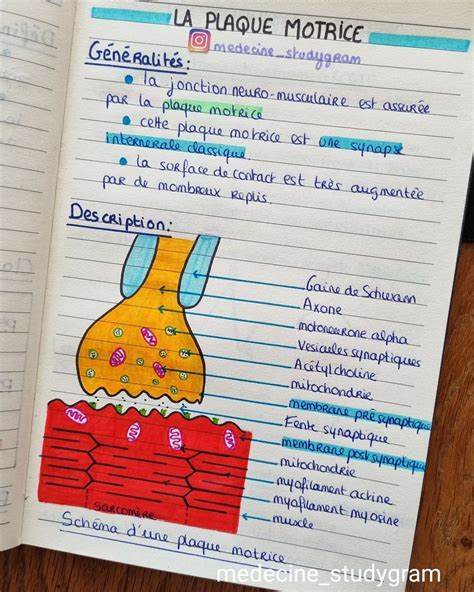 LA PLAQUE MOTRICE
medecine_studygram
Généralités:
• la jonction neuro-musculaire est assurée
par la plaque motrice
• cette plaque motrice est une synapse
interneurale classique.
• la surface de contact est très augmentée
par de nombreux replis.
Description:
Gaine de Schwann
Axone
motoneurone alpha
Vesicules synaptiques
Acétylcholine
mitochondrie
membrane présynaptique
Fente synaptique
membrane postsynaptique
mitochondrie
myofilament actine
myofilament myosine
muscle
sarcomère
Schéma d'une plaque motrice
medecine_studygram